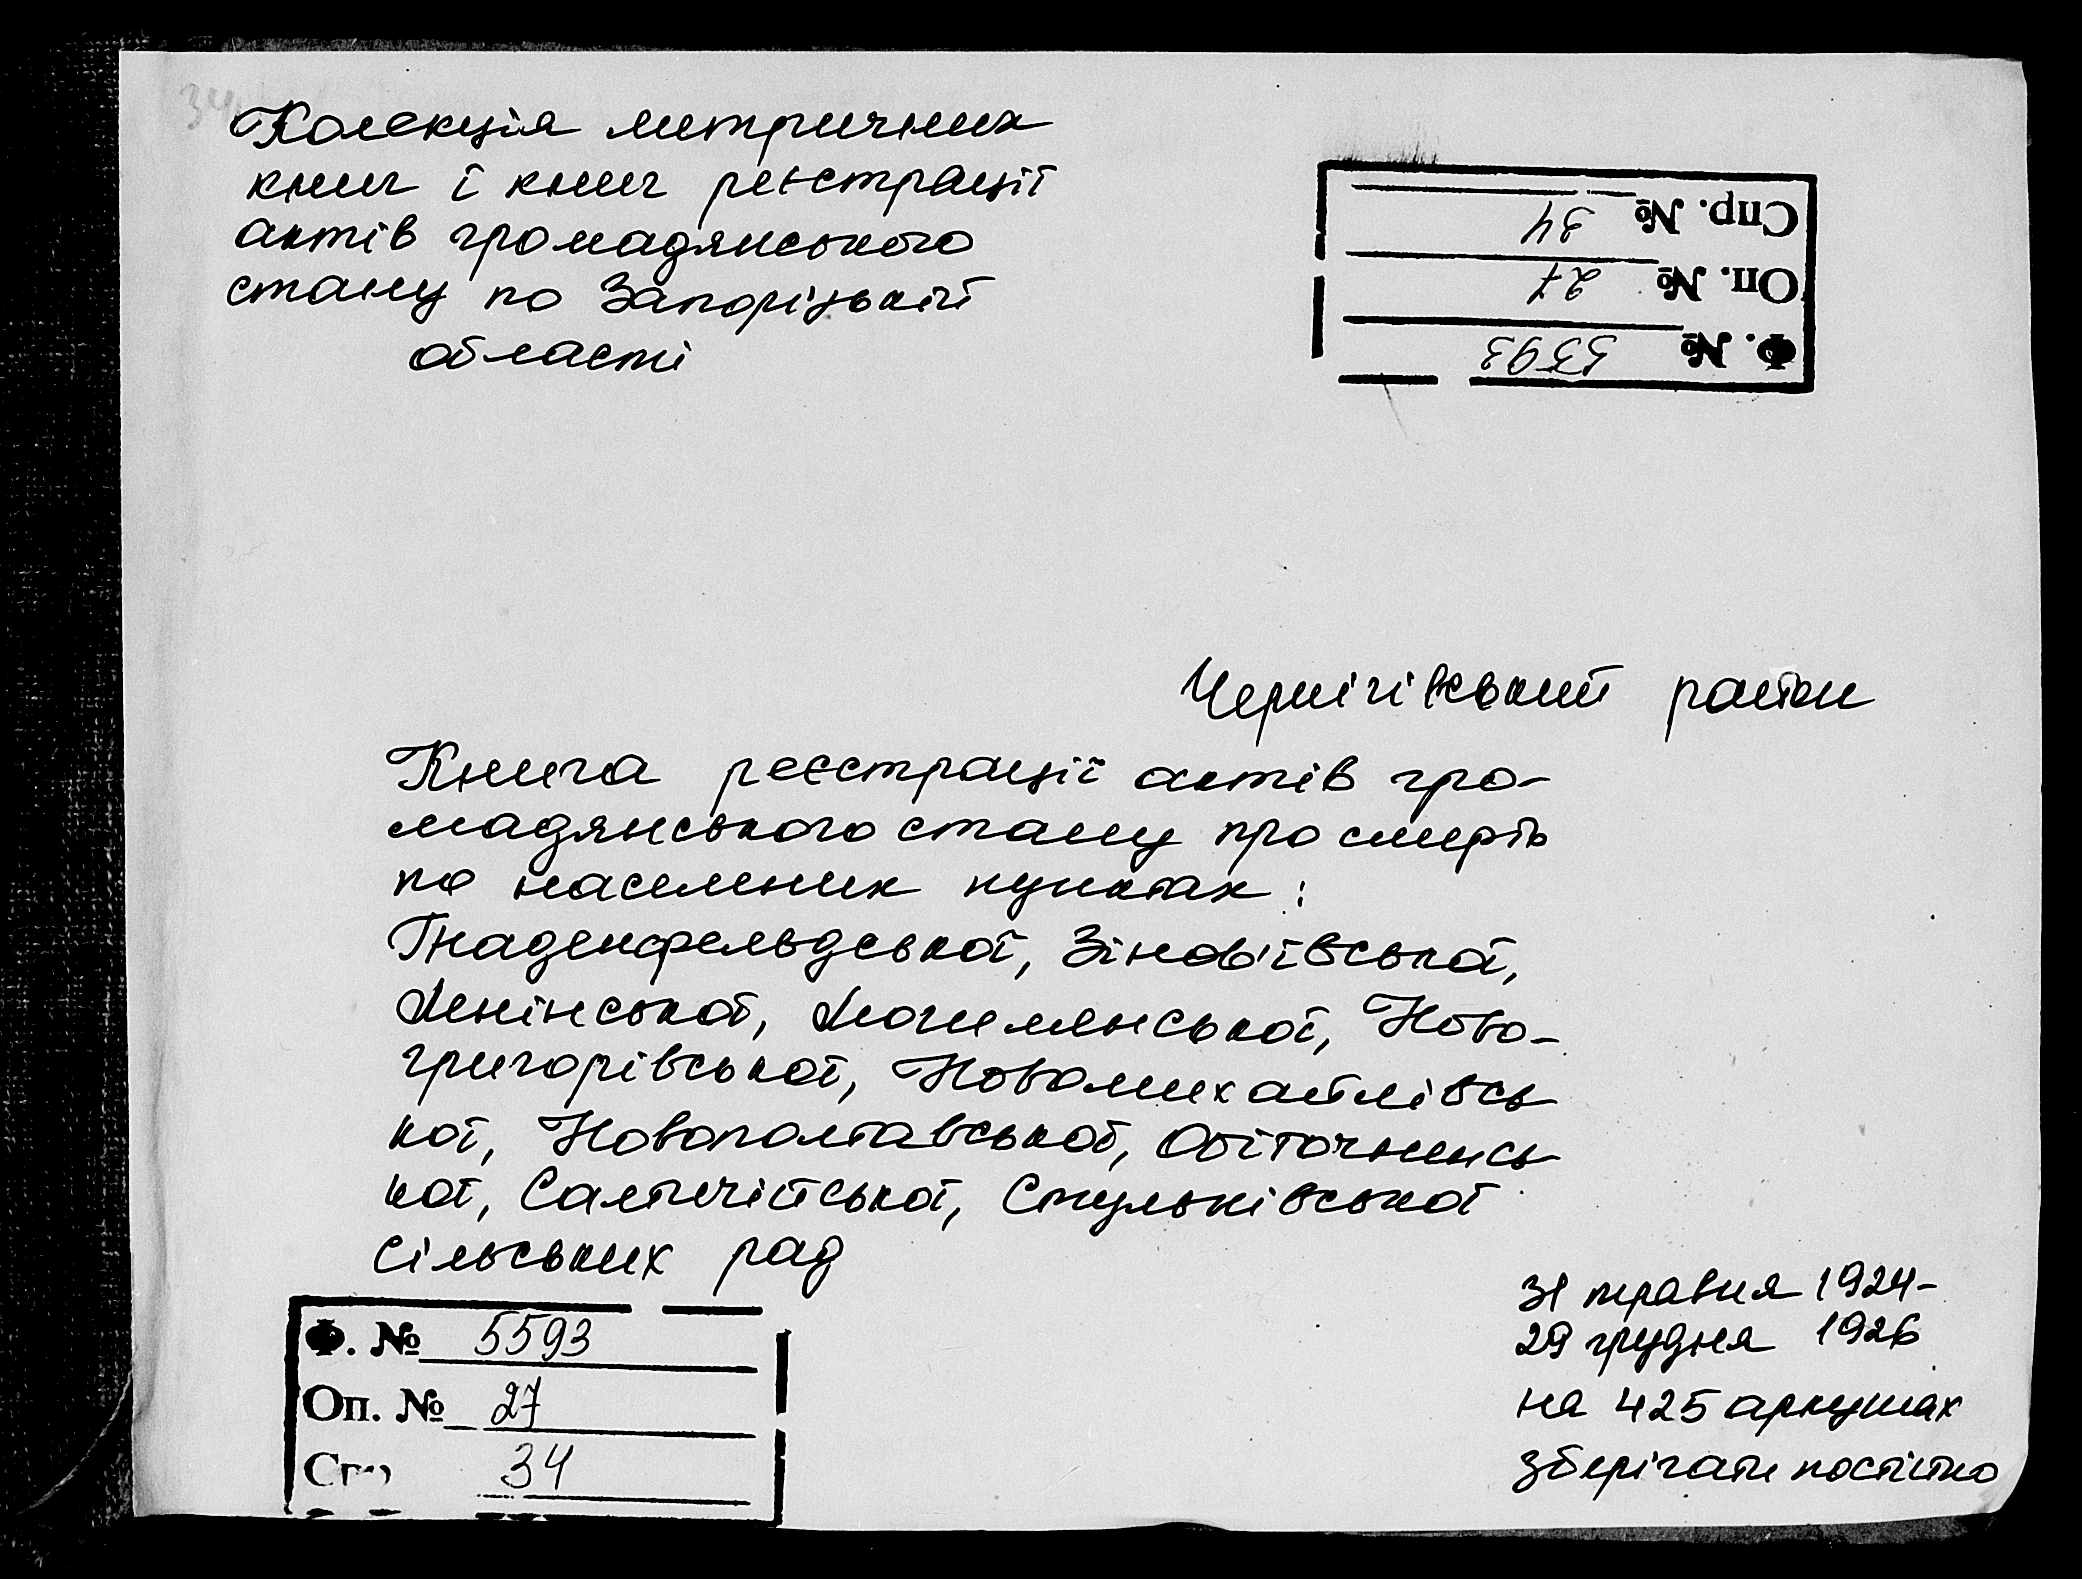 34
Колекція метричних
книг і книг реєстрації
актів громадянського
стану по Запорізькій
області
Спр. № 34
Оп. № 27
Ф. № 5593
Чернігівський район
Книга реєстрації актів гро-
мадянського стану про смерть
по населених пунктах:
Гнаденфельдської, Зінов'ївської,
Ленінської, Могилянської, Ново-
григорівської, Новомихайлівсь
кої, Новополтавської, Обіточненсь
кої, Салтичійської, Стульнівської
сільських рад
Ф. № 5593
Оп. № 27
34
31 травня 1924-
29 грудня 1926
на 425 аркушах
зберігати постійно